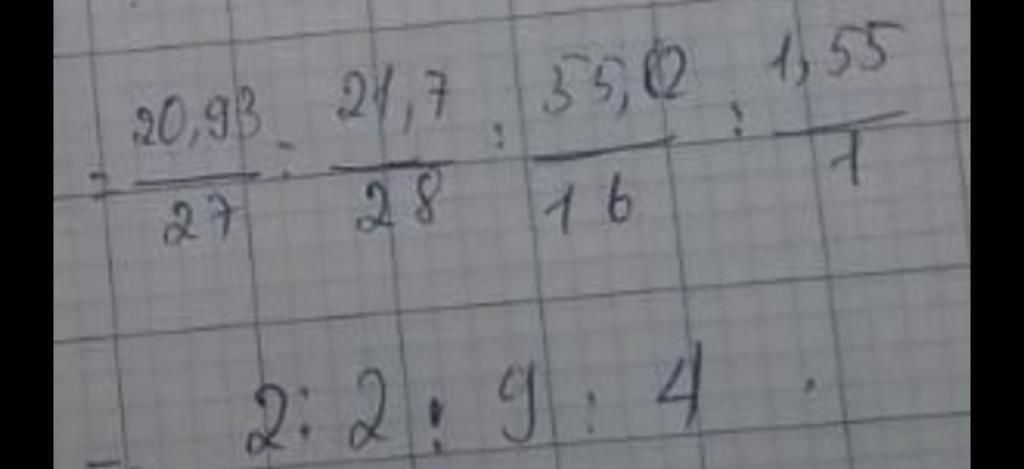 = 20,93/27 : 21,7/28 : 55,12/16 : 1,55/1
= 2 : 2 : 9 : 4 .